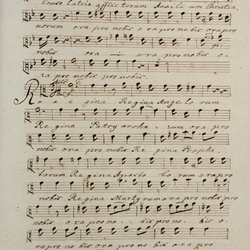 Consolatrix afflictorum Auxilium Christia
norum ora pro nobis ora pro nobis ora pro
nobis ora ora pro nobis
ra pro nobis pro nobis.
Regina Regina Angelorum
Regina Patriarcha rum ora pro
nobis ora pro nobis Regina Prophe
tarum Regina Aposto lorum ora pro
nobis Regina Martyrum ora pro nobis pro
nobis ora pro no bis pro no bis o
ra pro no bis ora pro no bis ora pro